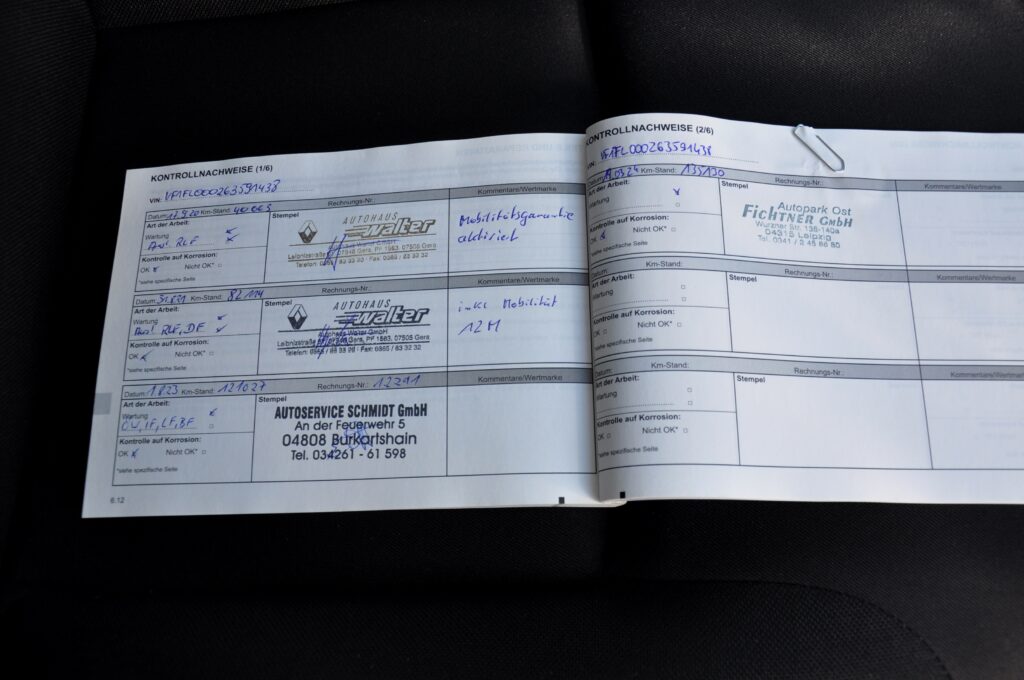 KONTROLLNACHWEISE (1/6)
VIN: VF1FL000263591438
Datum: Km-Stand: Rechnungs-Nr.: Kommentare/Wertmarke
Art der Arbeit:
Wartung
RLF
Kontrolle auf Korrosion:
OK Nicht OK*
*siehe spezifische Seite
Stempel
AUTOHAUS
Walter
Autohaus Walter GmbH
Leibnizstraße 07548 Gera, PF 1563, 07505 Gera
Telefon: 0365 / 83 32 20 · Fax: 0365 / 83 32 32
Mobilitätsgarantie
aktiviert
Datum: Km-Stand: 82 114 Rechnungs-Nr.: Kommentare/Wertmarke
Art der Arbeit:
Wartung
RLF, DF
Kontrolle auf Korrosion:
OK Nicht OK*
*siehe spezifische Seite
Stempel
AUTOHAUS
Walter
Autohaus Walter GmbH
Leibnizstraße Gera, PF 1563, 07505 Gera
Telefon: 0365 / 83 32 20 · Fax: 0365 / 83 32 32
inkl Mobilität
12M
Datum: 1.8.23 Km-Stand: 121027 Rechnungs-Nr.: 12291 Kommentare/Wertmarke
Art der Arbeit:
Wartung
ÖW, IF, LF, BF
Kontrolle auf Korrosion:
OK Nicht OK*
*siehe spezifische Seite
Stempel
AUTOSERVICE SCHMIDT GmbH
An der Feuerwehr 5
04808 Burkartshain
Tel. 034261 - 61 598
6.12
KONTROLLNACHWEISE (2/6)
VIN: VF1FL000263591438
Datum: Km-Stand: 135130 Rechnungs-Nr.: Kommentare/Wertmarke
Art der Arbeit:
Wartung
Kontrolle auf Korrosion:
OK Nicht OK*
*siehe spezifische Seite
Stempel
Autopark Ost
FICHTNER GmbH
Wurzner Str. 138-140a
04318 Leipzig
Tel. 0341 / 2 45 86 80
Datum: Km-Stand: Rechnungs-Nr.: Kommentare/Wertmarke
Art der Arbeit:
Wartung
Kontrolle auf Korrosion:
OK Nicht OK*
*siehe spezifische Seite
Stempel
Datum: Km-Stand: Rechnungs-Nr.: Kommentare/Wertmarke
Art der Arbeit:
Wartung
Kontrolle auf Korrosion:
OK Nicht OK*
*siehe spezifische Seite
Stempel